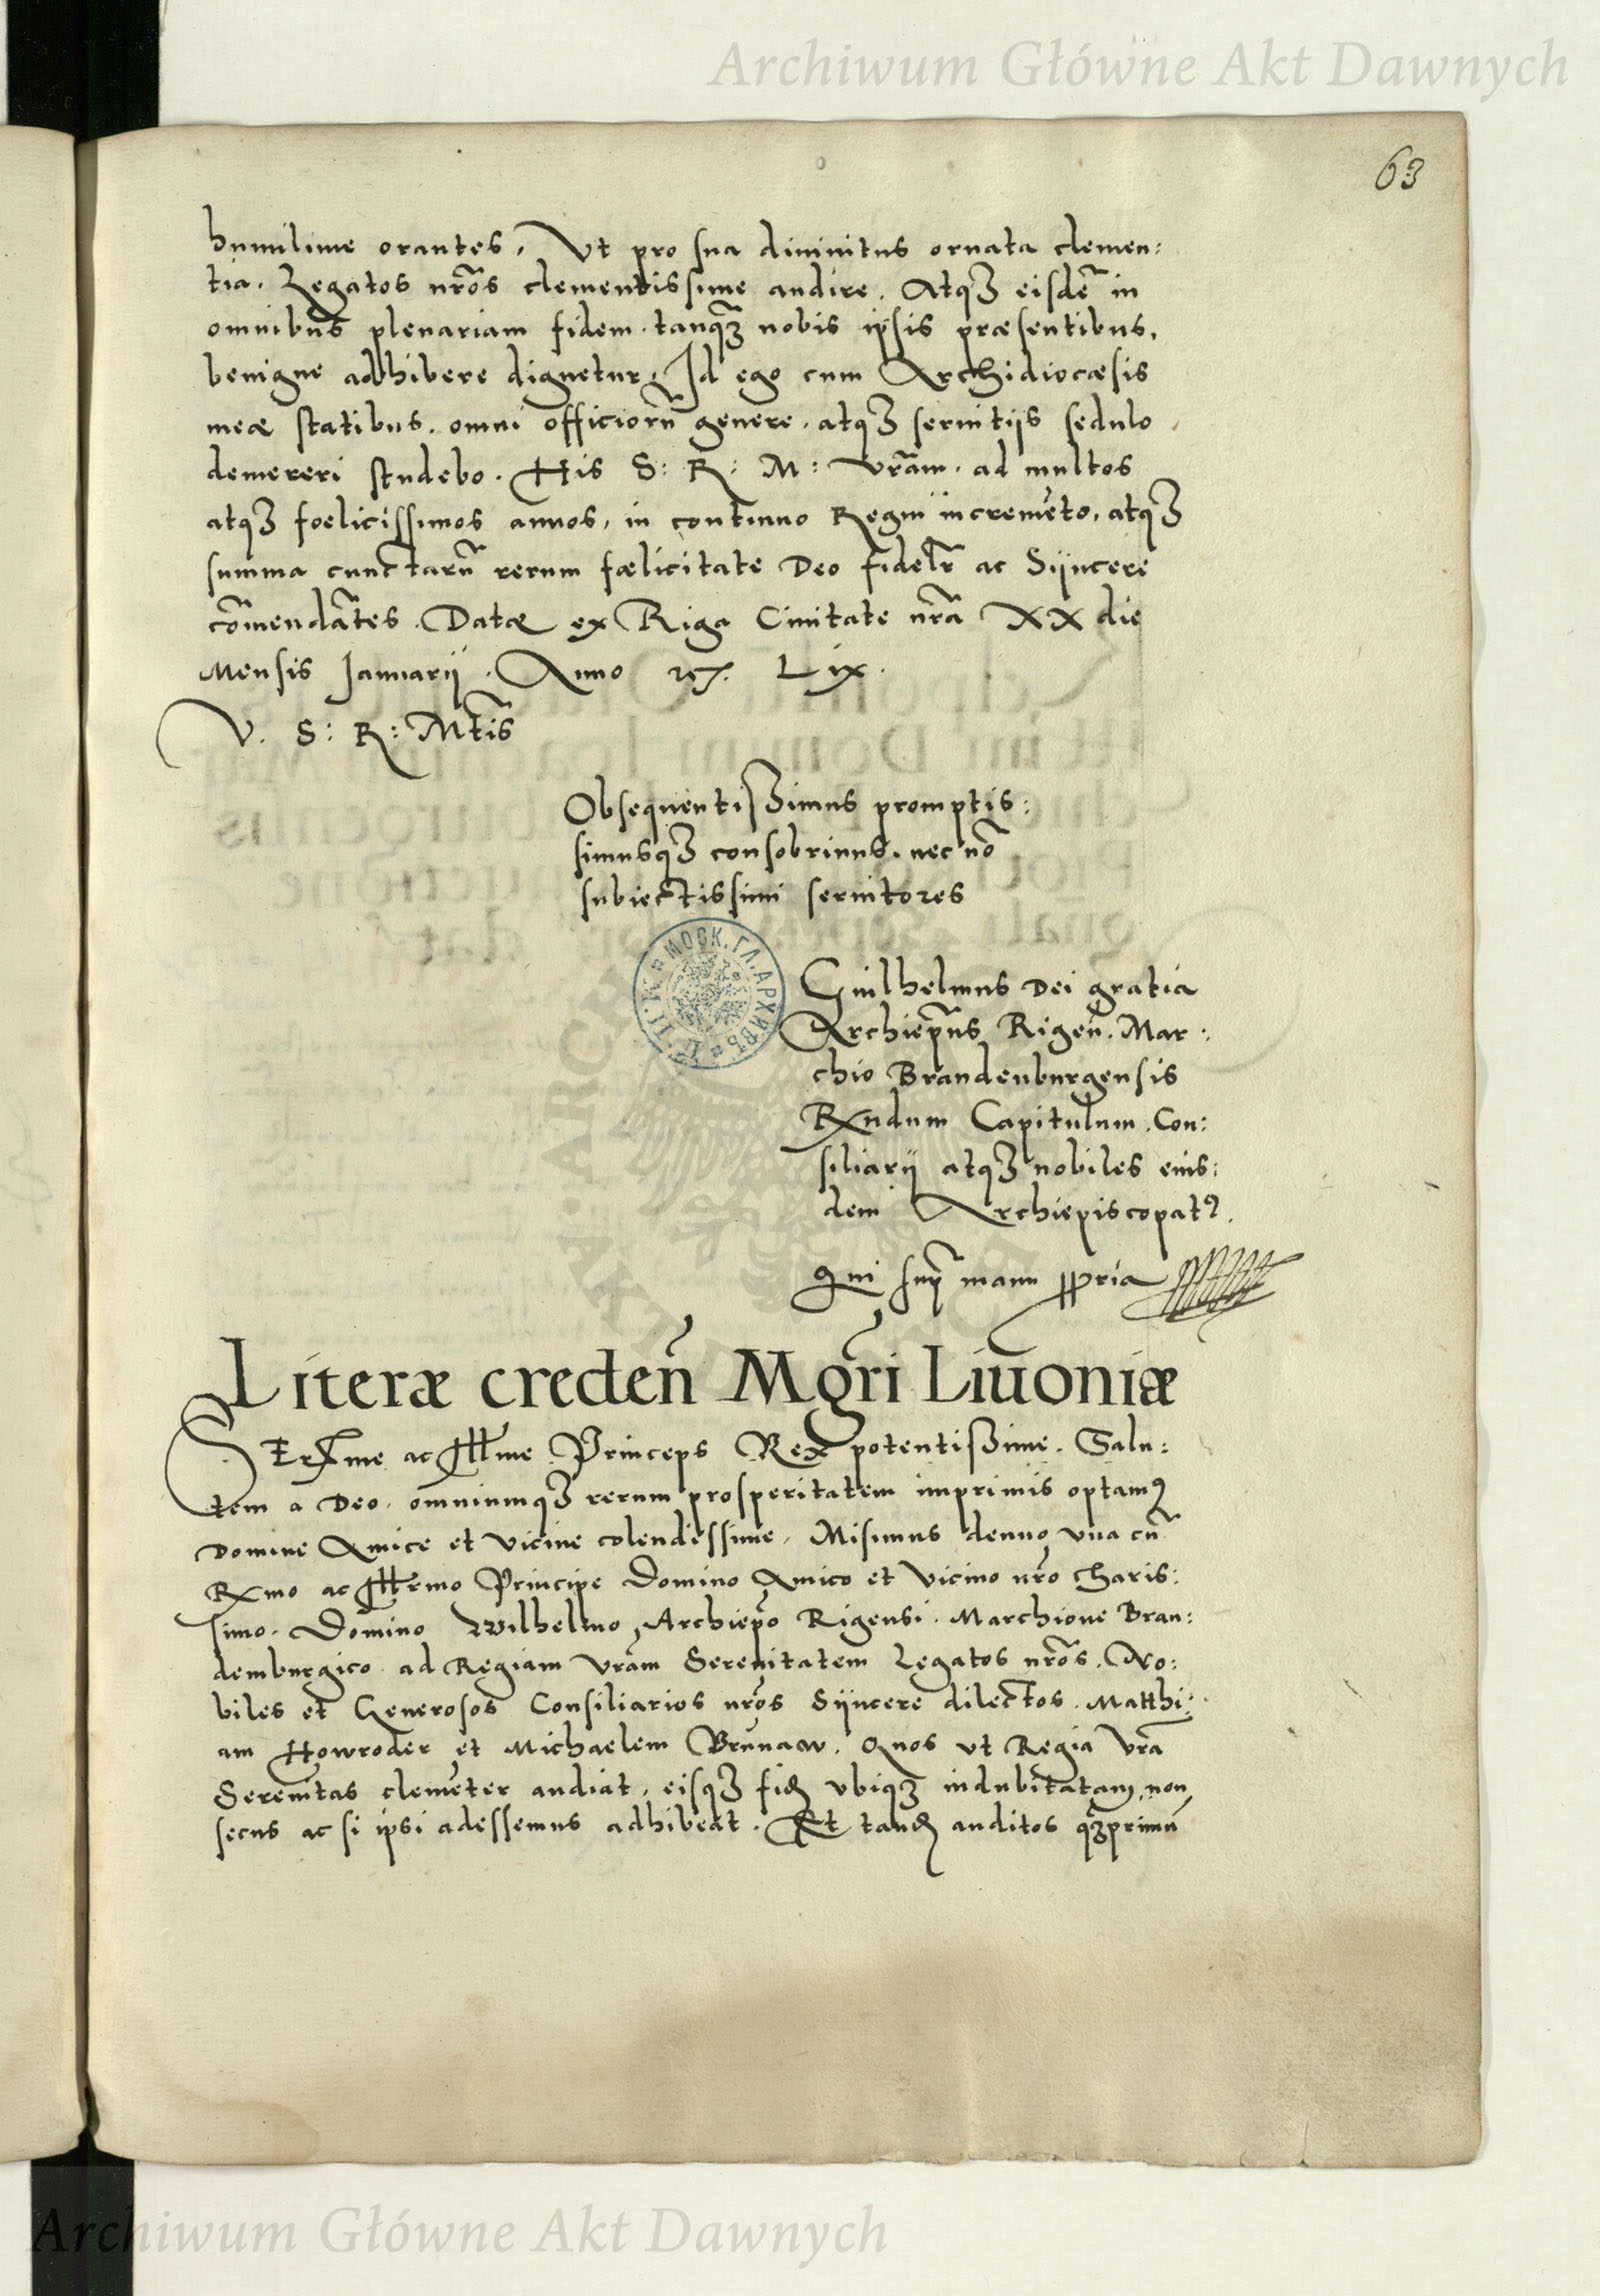 Archiwum Główne Akt Dawnych
63
humilime orantes, Ut pro sua diuinitus ornata clemen:
tia, Legatos nr̃os clementissime audire. Atqȝ eisdẽ in
omnibus plenariam fidem, tanqȝ nobis ipsis præsentibus,
benigne adhibere dignetur, Id ego cum Archidiocæsis
meæ statibus, omni officiorũ genere, atqȝ seruitijs sedulo
demereri studebo. His S: R: M: vr̃am, ad multos
atqȝ foelicissimos annos, in continuo Regni incremẽto, atqȝ
summa cunctarũ rerum fælicitate Deo fidelr̃ ac Sÿncere
cõmendãtes. Datæ ex Riga Ciuitate nr̃a XX die
Mensis Januarij. Anno etc. Lix.
V. S: R: Mtis
Obsequentißimus promptis:
simusqȝ consobrinus, nec nõ
subiectissimi seruitores
МОСК. ГЛ. АРХИВЪ
Guilhelmus Dei gratia
Archiep̃us Rigeñ. Mar:
chio Brandenburgensis
Rxndum Capitulum, Con:
siliarij atqȝ nobiles eius:
dem Archiepiscopatꝰ.
Qui sup̃ manu ppria
Literæ credeñ Mgr̃i Liuoniæ
SErxme ac Illme Princeps Rex potentißime. Salu:
tem a Deo, omniumqȝ rerum prosperitatem imprimis optamꝰ
Domine Amice et Vicine colendissime, Misimus denuo una cũ
Rxmo ac Illrmo Principe Domino Amico et Vicino nr̃o charis:
simo, Domino Wilhelmo, Archiep̃o Rigensi, Marchione Bran:
demburgico ad Regiam vr̃am Serenitatem Legatos nr̃os, No:
biles et Generosos Consiliarios nr̃os Sÿncere dilectos, Matthi:
am Howroder et Michaelem Brũnaw. Quos ut Regia vr̃a
Serenitas clemẽter audiat, eisqȝ fid̃ ubiqȝ indubitatam, non
secus ac si ipsi adessemus adhibeat. Et tand̃ auditos qȝprimũ
Archiwum Główne Akt Dawnych